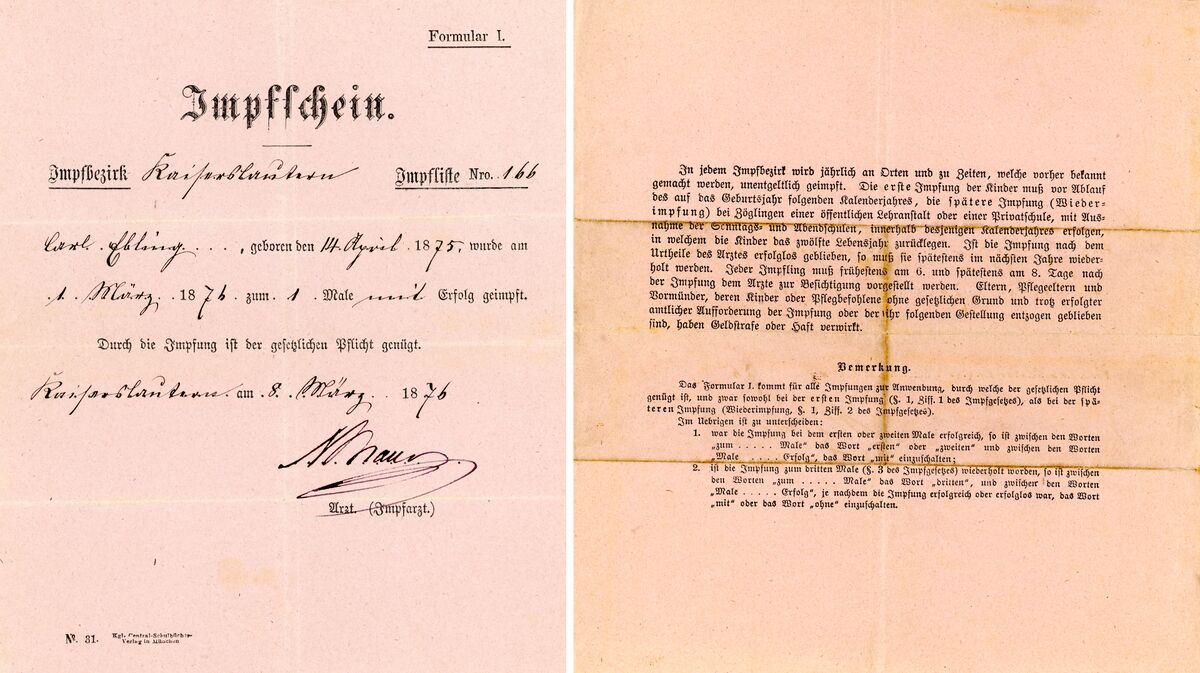 Formular I.
Impfschein.
Impfbezirk Kaiserslautern Impfliste Nro. 166
Carl Ebling . . . , geboren den 14. April 1875. wurde am
1. März. 1876 zum 1 Male mit Erfolg geimpft.
Durch die Impfung ist der gesetzlichen Pflicht genügt.
Kaiserslautern. am 8. März. 1876
Arzt. (Impfarzt.)
No. 31. Kgl. Central-Schulbücher-
Verlag in München
In jedem Impfbezirk wird jährlich an Orten und zu Zeiten, welche vorher bekannt
gemacht werden, unentgeltlich geimpft. Die erste Impfung der Kinder muß vor Ablauf
des auf das Geburtsjahr folgenden Kalenderjahres, die spätere Impfung (Wieder-
impfung) bei Zöglingen einer öffentlichen Lehranstalt oder einer Privatschule, mit Aus-
nahme der Sonntags- und Abendschulen, innerhalb desjenigen Kalenderjahres erfolgen,
in welchem die Kinder das zwölfte Lebensjahr zurücklegen. Ist die Impfung nach dem
Urtheile des Arztes erfolglos geblieben, so muß sie spätestens im nächsten Jahre wieder-
holt werden. Jeder Impfling muß frühestens am 6. und spätestens am 8. Tage nach
der Impfung dem Arzte zur Besichtigung vorgestellt werden. Eltern, Pflegeeltern und
Vormünder, deren Kinder oder Pflegbefohlene ohne gesetzlichen Grund und trotz erfolgter
amtlicher Aufforderung der Impfung oder der ihr folgenden Gestellung entzogen geblieben
sind, haben Geldstrafe oder Haft verwirkt.
Bemerkung.
Das Formular I. kommt für alle Impfungen zur Anwendung, durch welche der gesetzlichen Pflicht
genügt ist, und zwar sowohl bei der ersten Impfung (§. 1, Ziff. 1 des Impfgesetzes), als bei der spä-
teren Impfung (Wiederimpfung, §. 1, Ziff. 2 des Impfgesetzes).
Im Uebrigen ist zu unterscheiden:
1. war die Impfung bei dem ersten oder zweiten Male erfolgreich, so ist zwischen den Worten
„zum . . . . . Male“ das Wort „ersten“ oder „zweiten“ und zwischen den Worten
„Male . . . . . Erfolg“, das Wort „mit“ einzuschalten;
2. ist die Impfung zum dritten Male (§. 3 des Impfgesetzes) wiederholt worden, so ist zwischen
den Worten „zum . . . . . Male“ das Wort „dritten“, und zwischen den Worten
„Male . . . . . Erfolg“, je nachdem die Impfung erfolgreich oder erfolglos war, das Wort
„mit“ oder das Wort „ohne“ einzuschalten.